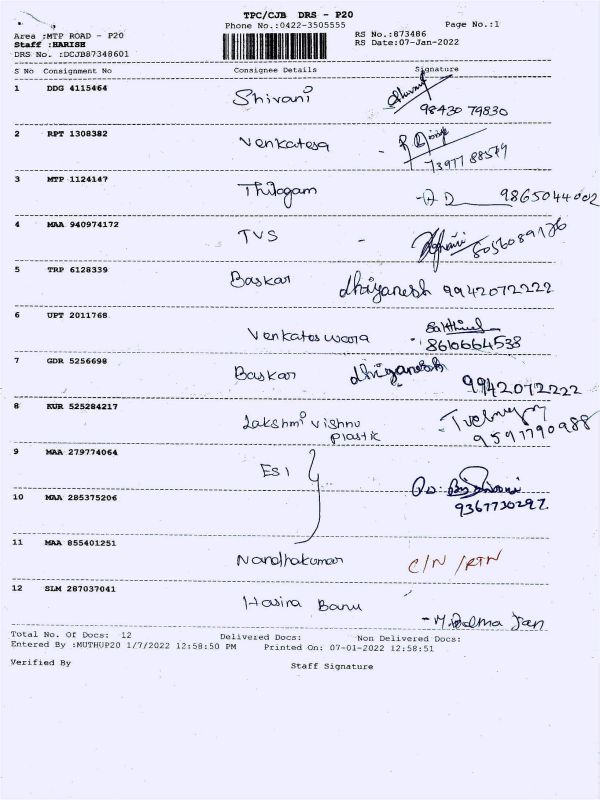 TPC/CJB DRS - P20
Phone No.:0422-3505555
Page No.:1
Area :MTP ROAD - P20
Staff :HARISH
DRS No. :DCJB87348601
RS No.:873486
RS Date:07-Jan-2022
S No Consignment No Consignee Details Signature
1 DDG 4115464 Shivani
98430 79830
2 RPT 1308382 Venkatesa -
73977 88549
3 MTP 1124147 Thilagam 9865044002
4 MAA 940974172 TVS - 8056089126
5 TRP 6128339 Baskar dhiyanesh 9942072222
6 UPT 2011768 Venkateswara Sakthivel
8610664538
7 GDR 5256698 Baskar dhiyanesh
9942072222
8 KUR 525284217 Lakshmi Vishnu
Plastik
9597790988
9 MAA 279774064 ESI
10 MAA 285375206
9367730297
11 MAA 855401251 Nandhakumar C/N /RTN
12 SLM 287037041 Hasina Banu
Total No. Of Docs: 12 Delivered Docs: Non Delivered Docs:
Entered By :MUTHUP20 1/7/2022 12:58:50 PM Printed On: 07-01-2022 12:58:51
Verified By Staff Signature